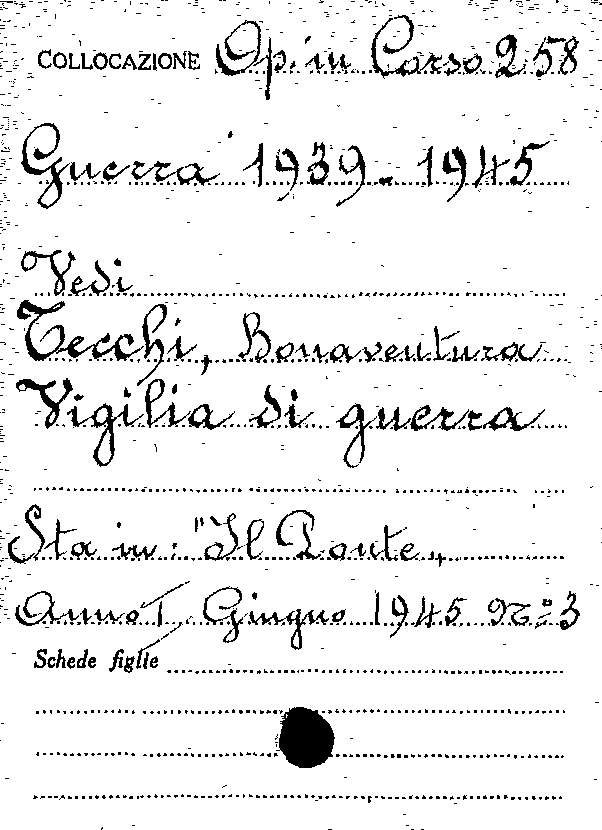 COLLOCAZIONE Op. in Corso 258
Guerra 1939-1945
Vedi
Tecchi, Bonaventura
Vigilia di guerra
Sta in: "Il Ponte„
Anno I, Giugno 1945 N° 3
Schede figlie